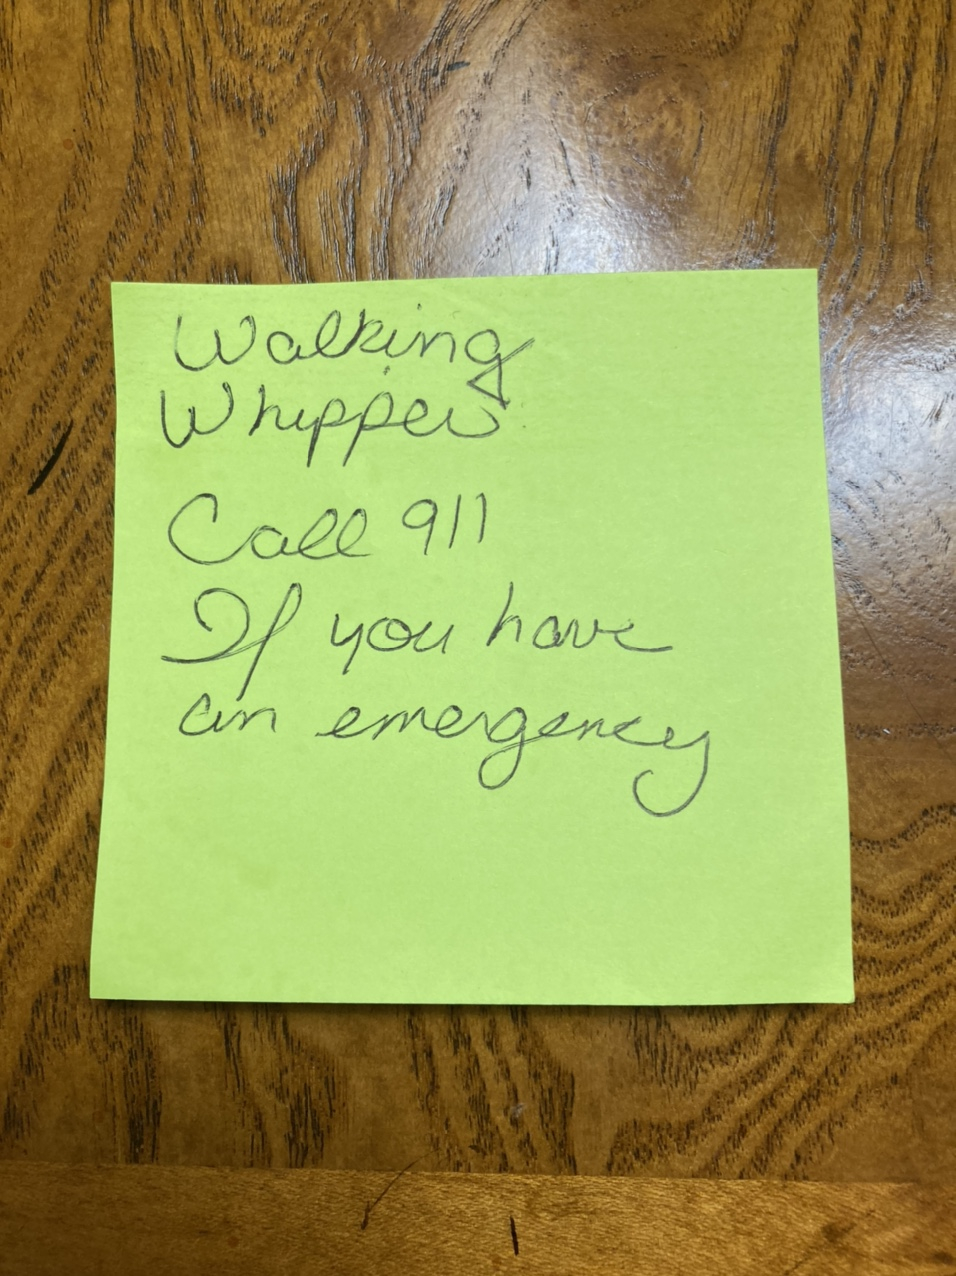 Walking
Whipper
Call 911
If you have
an emergency